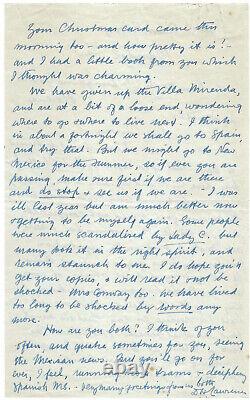 Your Christmas card came this
morning too – and how pretty it is! –
and I had a little book from you which
I thought was charming.
We have given up the Villa Mirenda,
and are at a bit of a loose end wondering
where to go & where to live next. I think
in about a fortnight we shall go to Spain,
and try that. But we might go to New
Mexico for the summer, so if ever you are
passing, make sure first if we are there
and do stop & see us if we are. – I was
ill last year but am much better now
& getting to be myself again. Some people
were much scandalised by Lady C. but
many took it in the right spirit, and
remain staunch to one. I do hope you'll
get your copies, & will read it & not be
shocked – Mrs Conway too. We have lived
too long to be shocked by words any
more.
How are you both? I think of you
often, and quake sometimes for you, seeing
the Mexican news. But you'll go on for
ever, I feel, running trams & deciphering
Spanish MS. – Very many greetings from us both
D.H. Lawrence